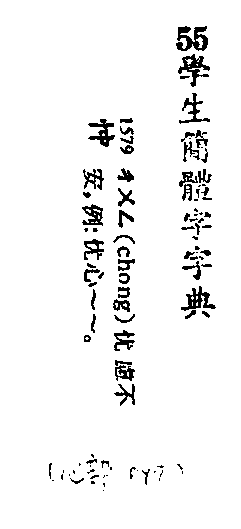 55學生簡體字字典
1579 ㄔㄨㄥ(chong)忧慮不
忡 安,例:忧心~~。